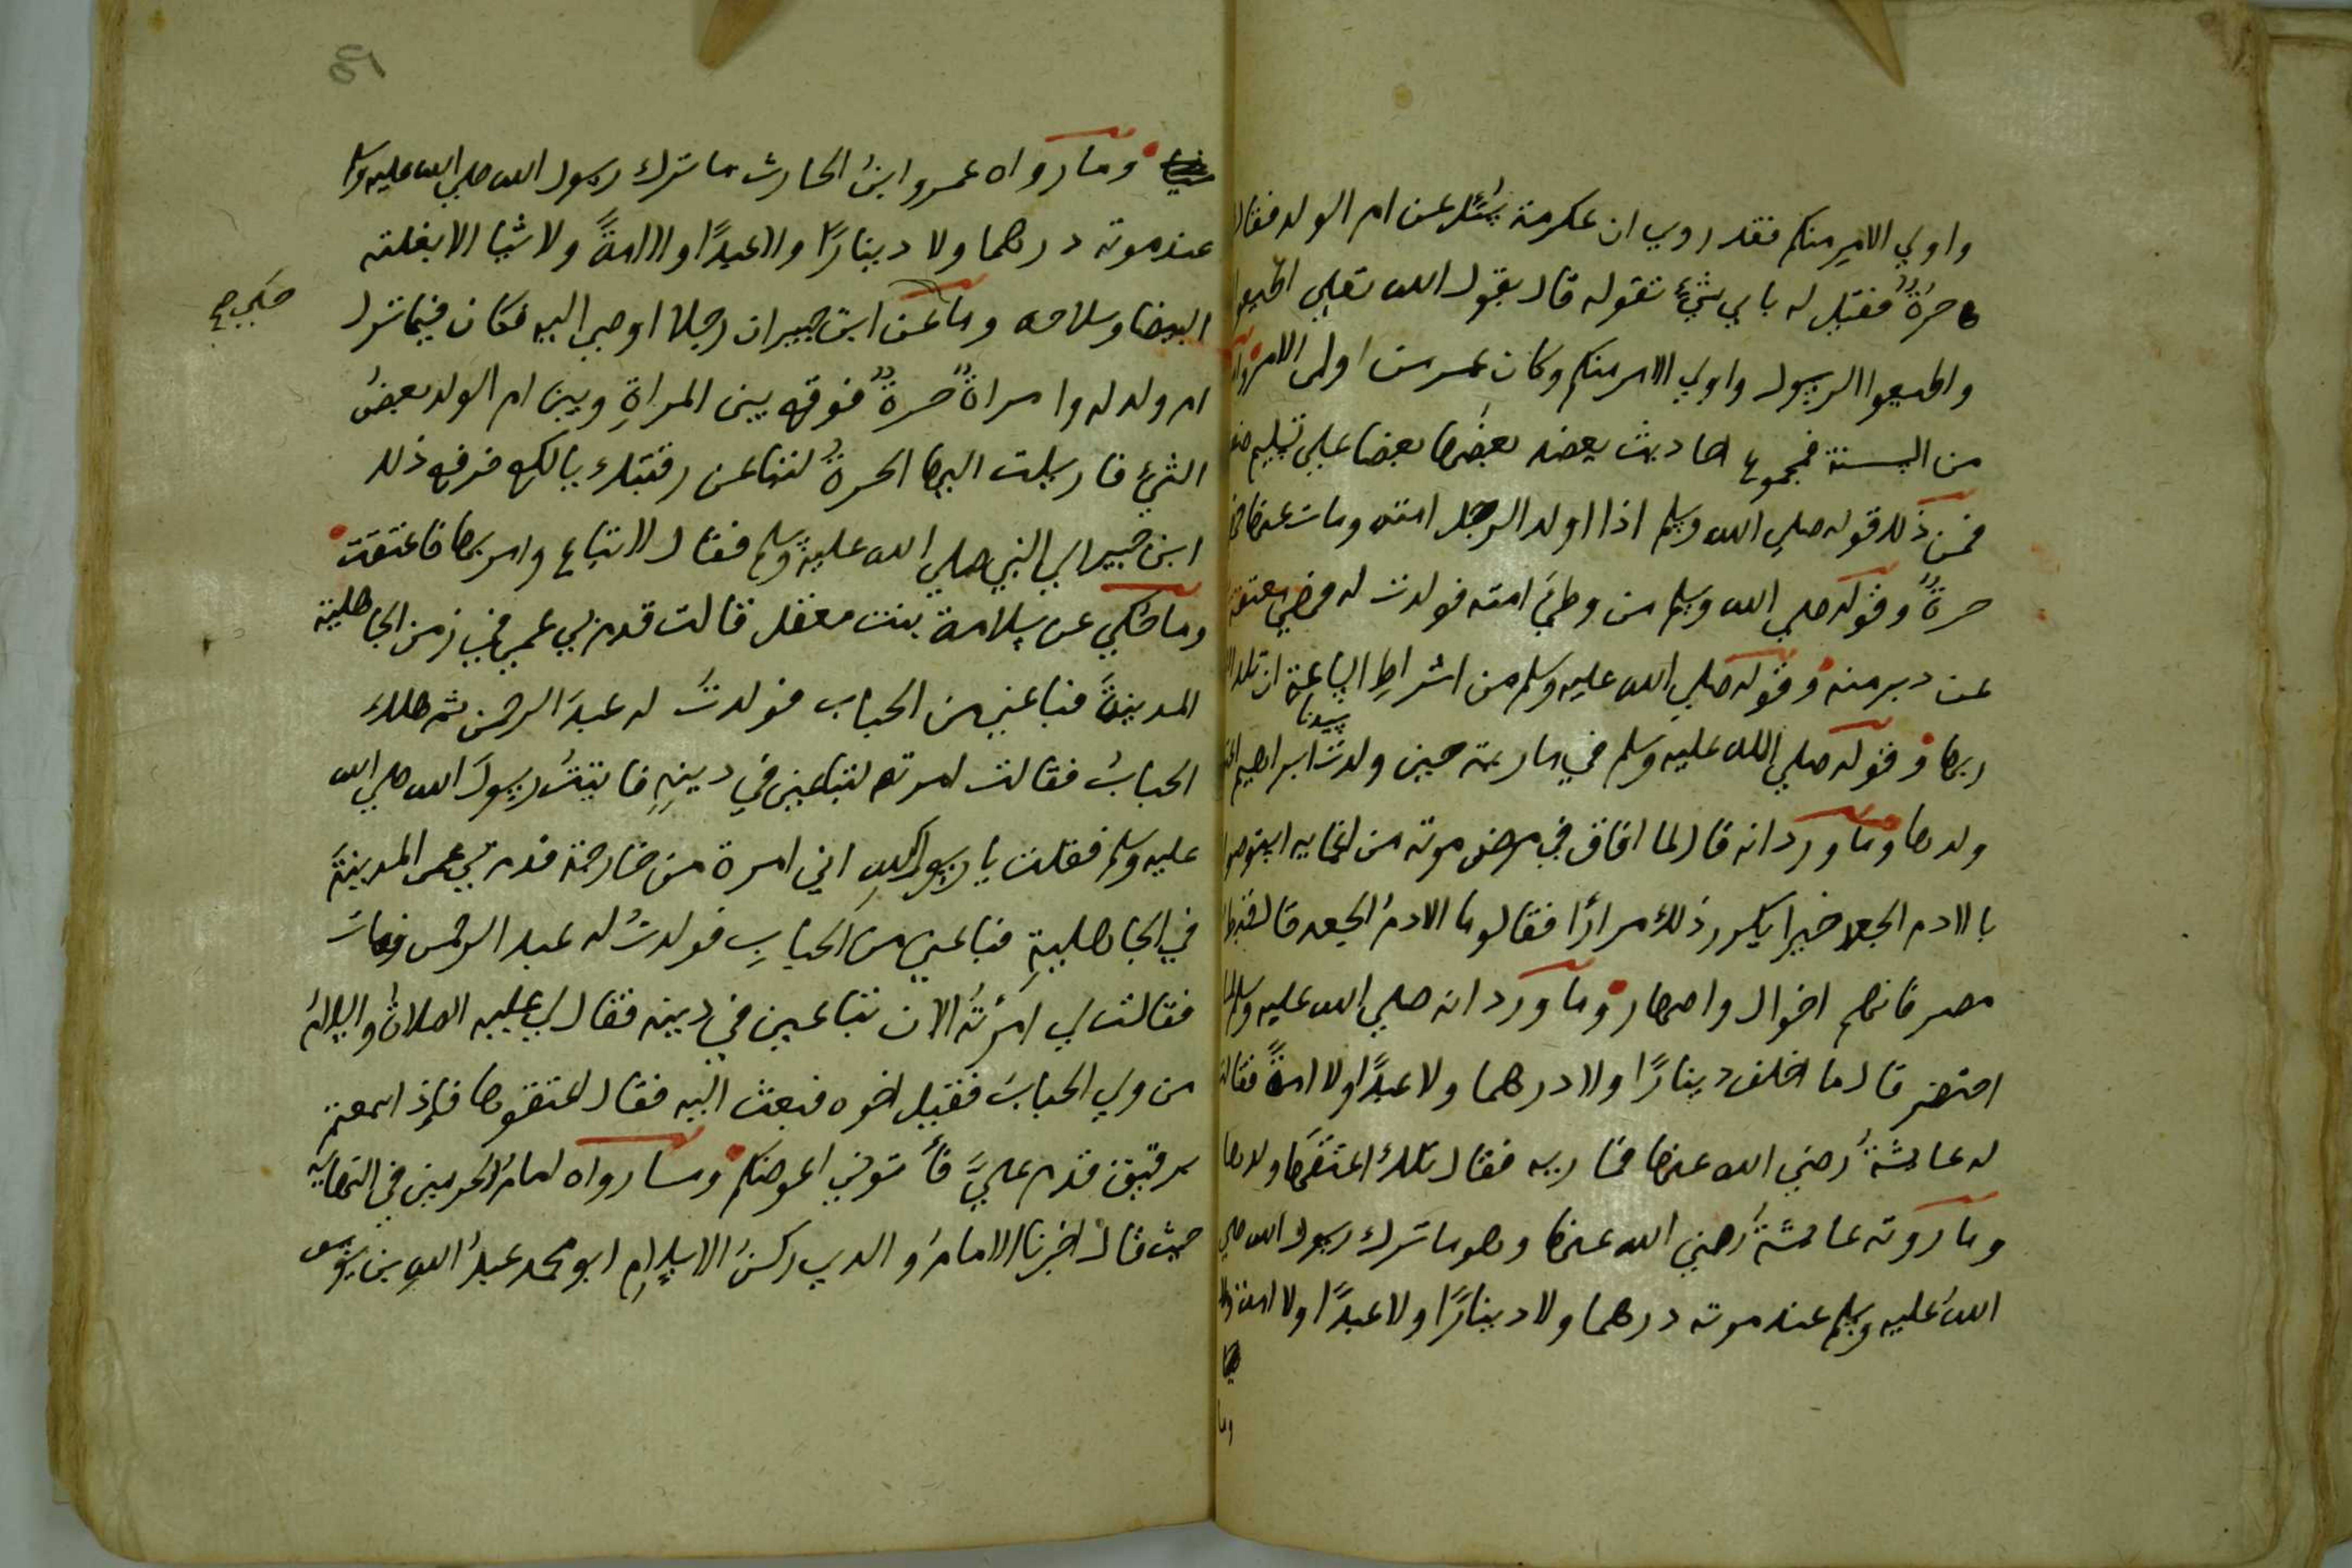 واولي الامر منكم فقد روي ان عكرمة سُئل عن ام الولد فقال
حرةٌ فقيل له باي شيٍ تقوله قال بقول الله تعلي اطيعوا
واطيعوا الرسول واولي الامر منكم وكان عمر من اولى الامر
من السنة فمجموع احاديث يعضد بعضُها بعضا علي
فمن ذلك قوله صلي الله وسلم اذا اولد الرجل امته ومات عنها
حرةٌ وقوله صلي الله وسلم من وطئَ امته فولدت له فهي معتقة
عن دبر منه وقوله صلي الله عليه وسلم من اشراطِ الساعة ان تلد
ربها وقوله صلي الله عليه وسلم في مارية حين ولدت سيدنا ابراهيم
ولدها وما ورد انه قال لما افاق في مرض موته من اغمايه استوصوا
بالادم الجعد خيرا يكرر ذلك مرارًا فقالوا ما الادمُ الجعد قال قبط
مصر فانهم اخوال واصهار وما ورد انه صلي الله عليه وسلم لما
احتضر قال ما اخلف دينارًا ولا درهما ولا عبدًا ولا امةً فقالت
له عايشةُ رضي الله عنها فمارية فقال تلك اعتقها ولدها
وما روته عايشةُ رضي الله عنها وهو ما ترك رسول الله صلي
اللهُ عليه وسلم عند موته درهما ولا دينارًا ولا عبدًا ولا امة ولا
وما
٤٦
وما رواه عمرو ابنُ الحارث ما ترك رسول الله صلي الله عليه وسلم
عند موته درهما ولا دينارًا ولا عبدًا ولا امةً ولا شيا الا بغلته
البيضا وسلاحه وما عن ابن جبير ان رجلا اوصي اليه فكان فيما ترك
حكي صح
ام ولد له وامراةٌ حرةٌ فوقع بين المراةِ وبين ام الولد بعضُ
الشيٍ فارسلت اليها الحرةُ لتباعن رقبتك يالكع فرفع ذلك
ابن جبير الي النبي صلي الله عليه وسلم فقال لا تباع وامر بها فاعتقت
وما حكي عن سلامة بنت معقل قالت قدم بي عمي في زمن الجاهلية
المدينةَ فباعني من الحباب فولدتُ له عبدَ الرحمن ثم هلك
الحبابُ فقالت امرته لتباعين في دينِهِ فاتيتُ رسولَ الله صلي الله
عليه وسلم فقلت يا رسول اللهِ اني امرة من خارجة قدم بي عمي المدينةَ
في الجاهليةِ فباعني من الحبابِ فولدتُ له عبد الرحمن فمات
فقالت لي امرتُه الان تباعين في دينه فقال لي عليه الصلاةُ والسلامُ
من ولي الحبابَ فقيل اخوه فبعث اليه فقال اعتقوها فإذا سمعتم
برقيق قدم عليَّ فأتوني اعوضكم وما رواه امامُ الحرمين في النهايةِ
حيث قال اخبرنا الامامُ والدي ركنُ الاسلامِ ابو محمد عبدُ اللهِ بن يوسف